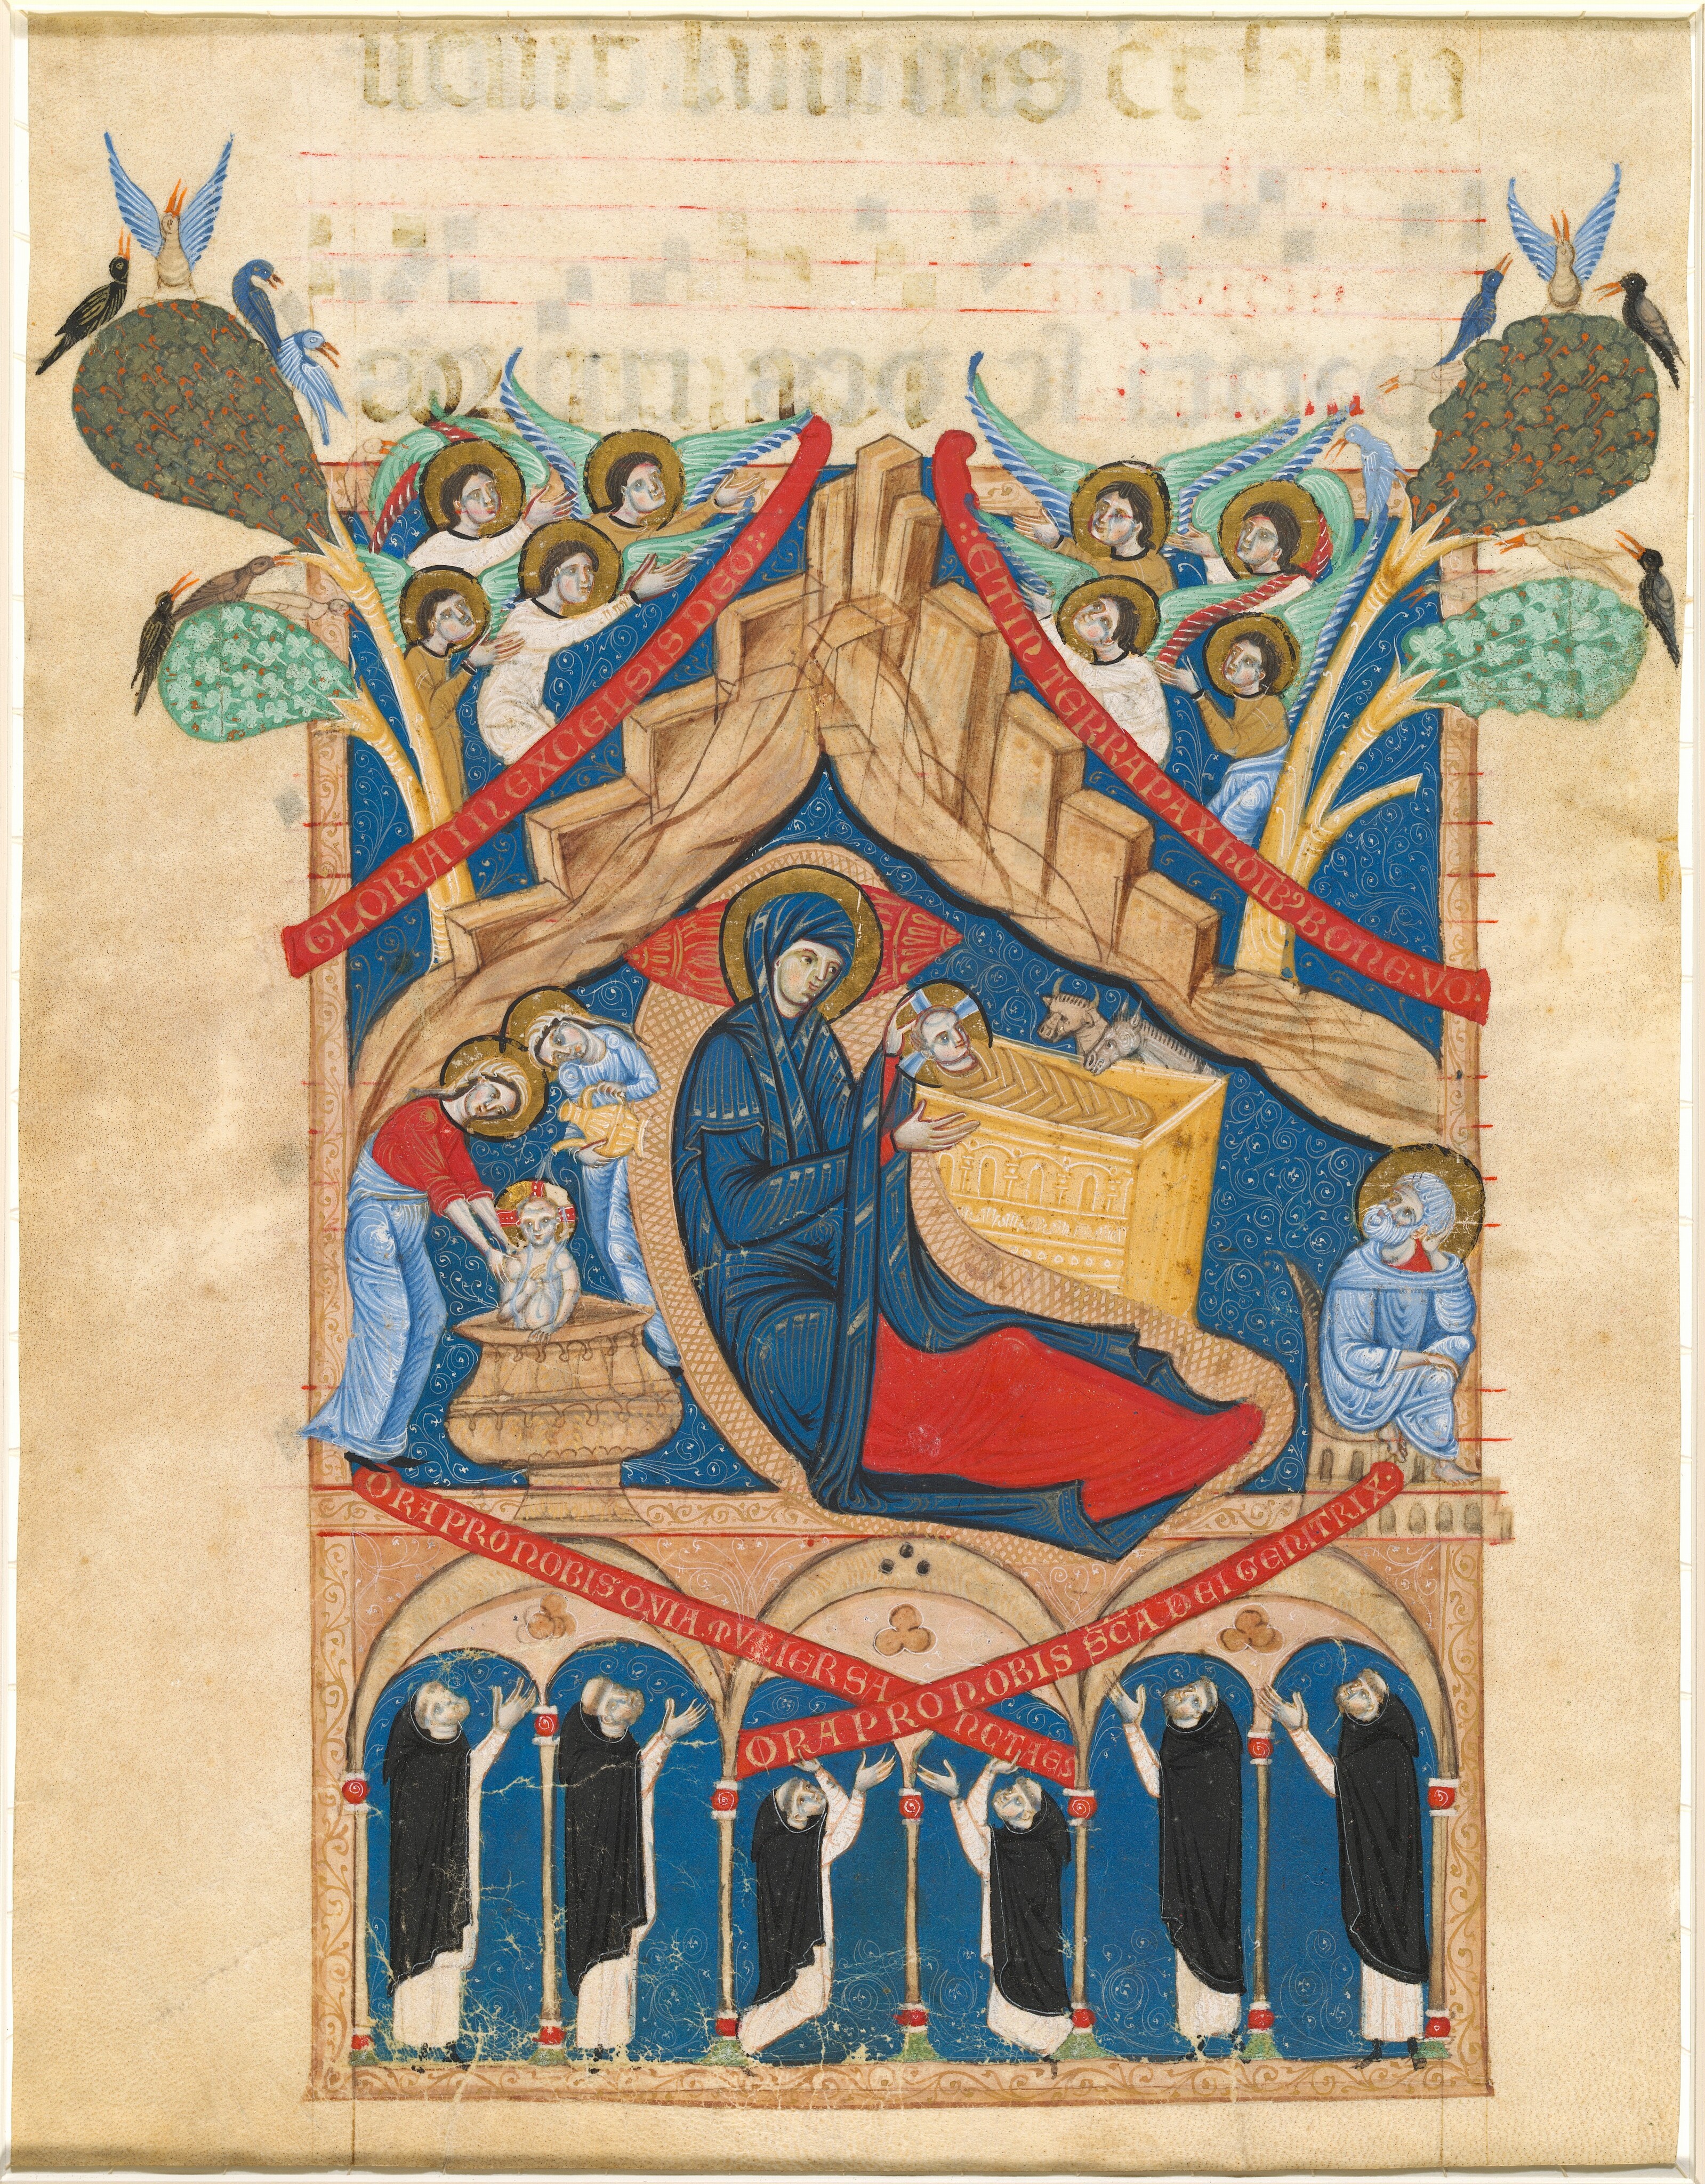 GLORIA IN EXCELSIS DEO:
ET IN TERRA PAX hOIBꝰ BONE·VO·
ORA PRO NOBIS QVIA MVLIER SANCTA ES
ORA PRO NOBIS SCA DEI GENITRIX·